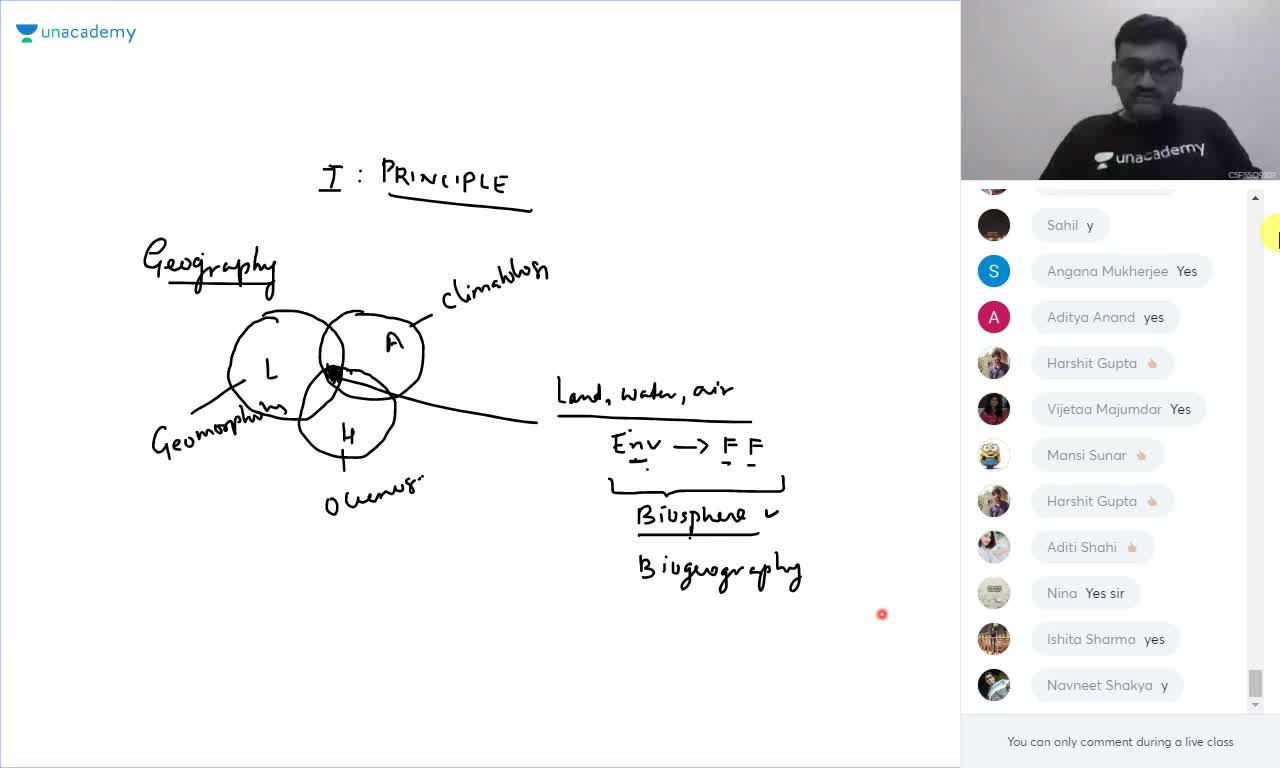 unacademy
I : PRINCIPLE
Geography
Climatology
L
A
H
Geomorphology
Land, water, air
Env → F F
Biosphere ✓
Biogeography
unacademy
Sahil y
Angana Mukherjee Yes
Aditya Anand yes
Harshit Gupta 👆
Vijetaa Majumdar Yes
Mansi Sunar 👆
Harshit Gupta 👆
Aditi Shahi 👍
Nina Yes sir
Ishita Sharma yes
Navneet Shakya y
You can only comment during a live class
S
A